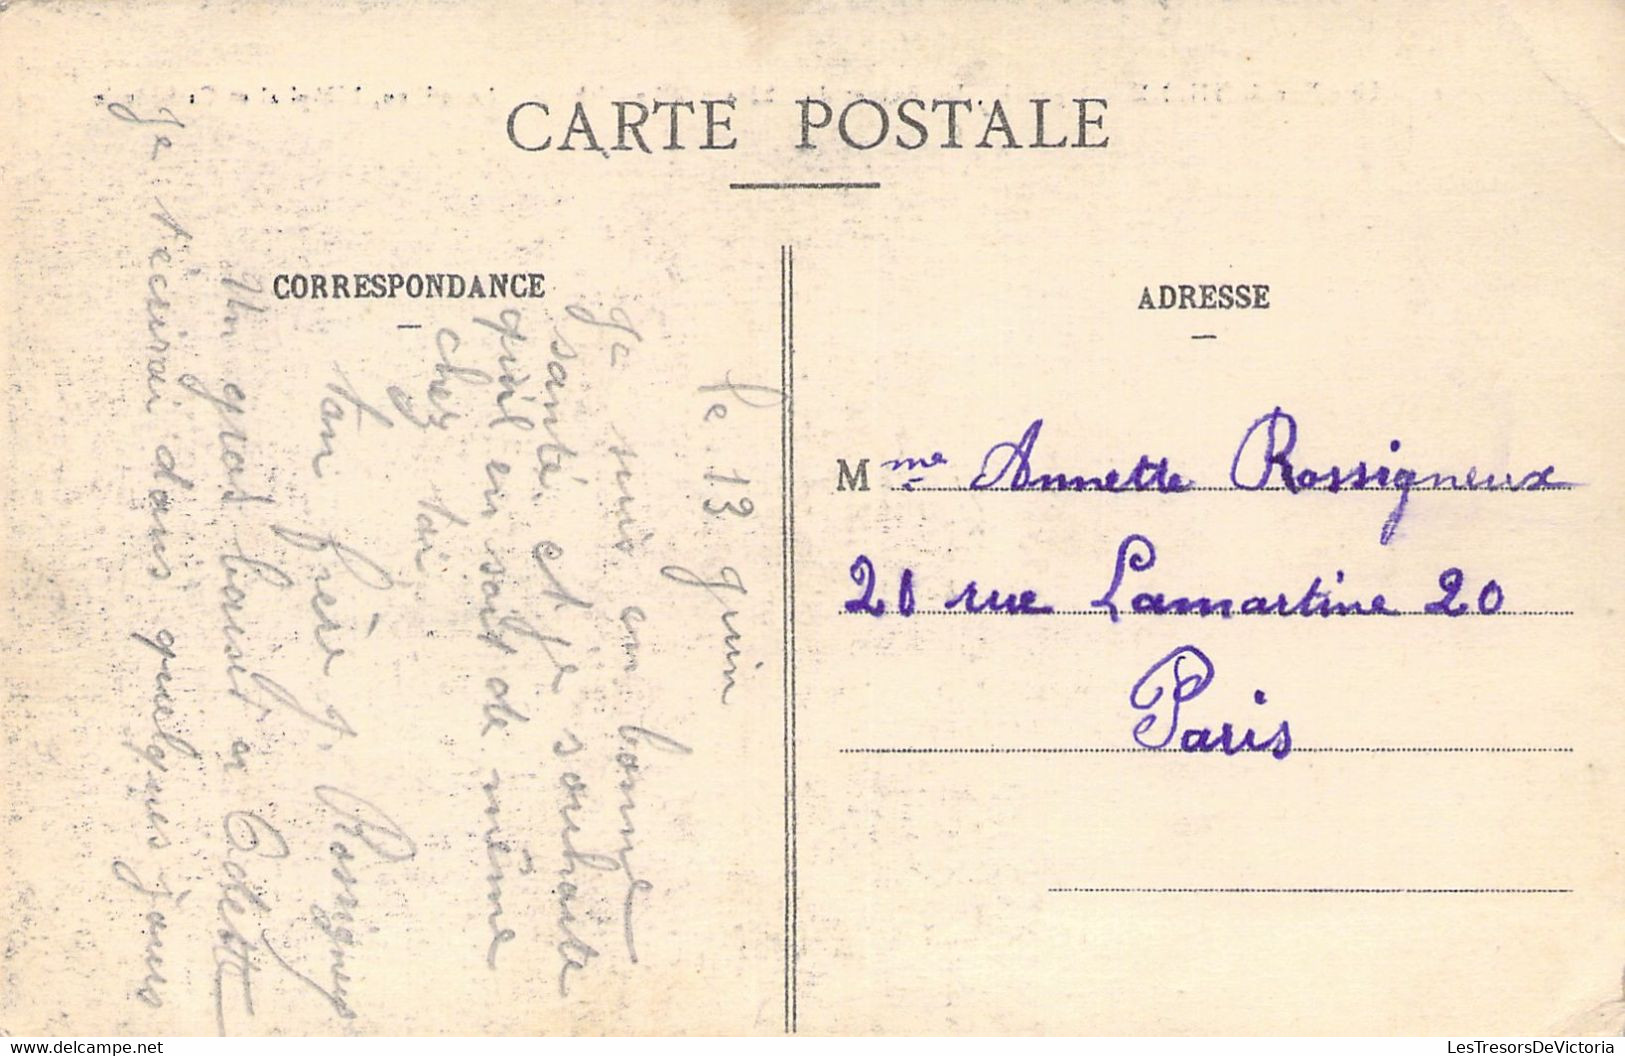 CARTE POSTALE
CORRESPONDANCE
le 13 juin
Je suis en bonne
santé, et je souhaite
qu'il en soit de même
chez toi
Ton frère J. Rossigneux
Un gros baiser a Odette
Je t'écrirai dans quelques jours
ADRESSE
Mme Annette Rossigneux
20 rue Lamartine 20
Paris
LesTresorsDeVictoria
www.delcampe.net